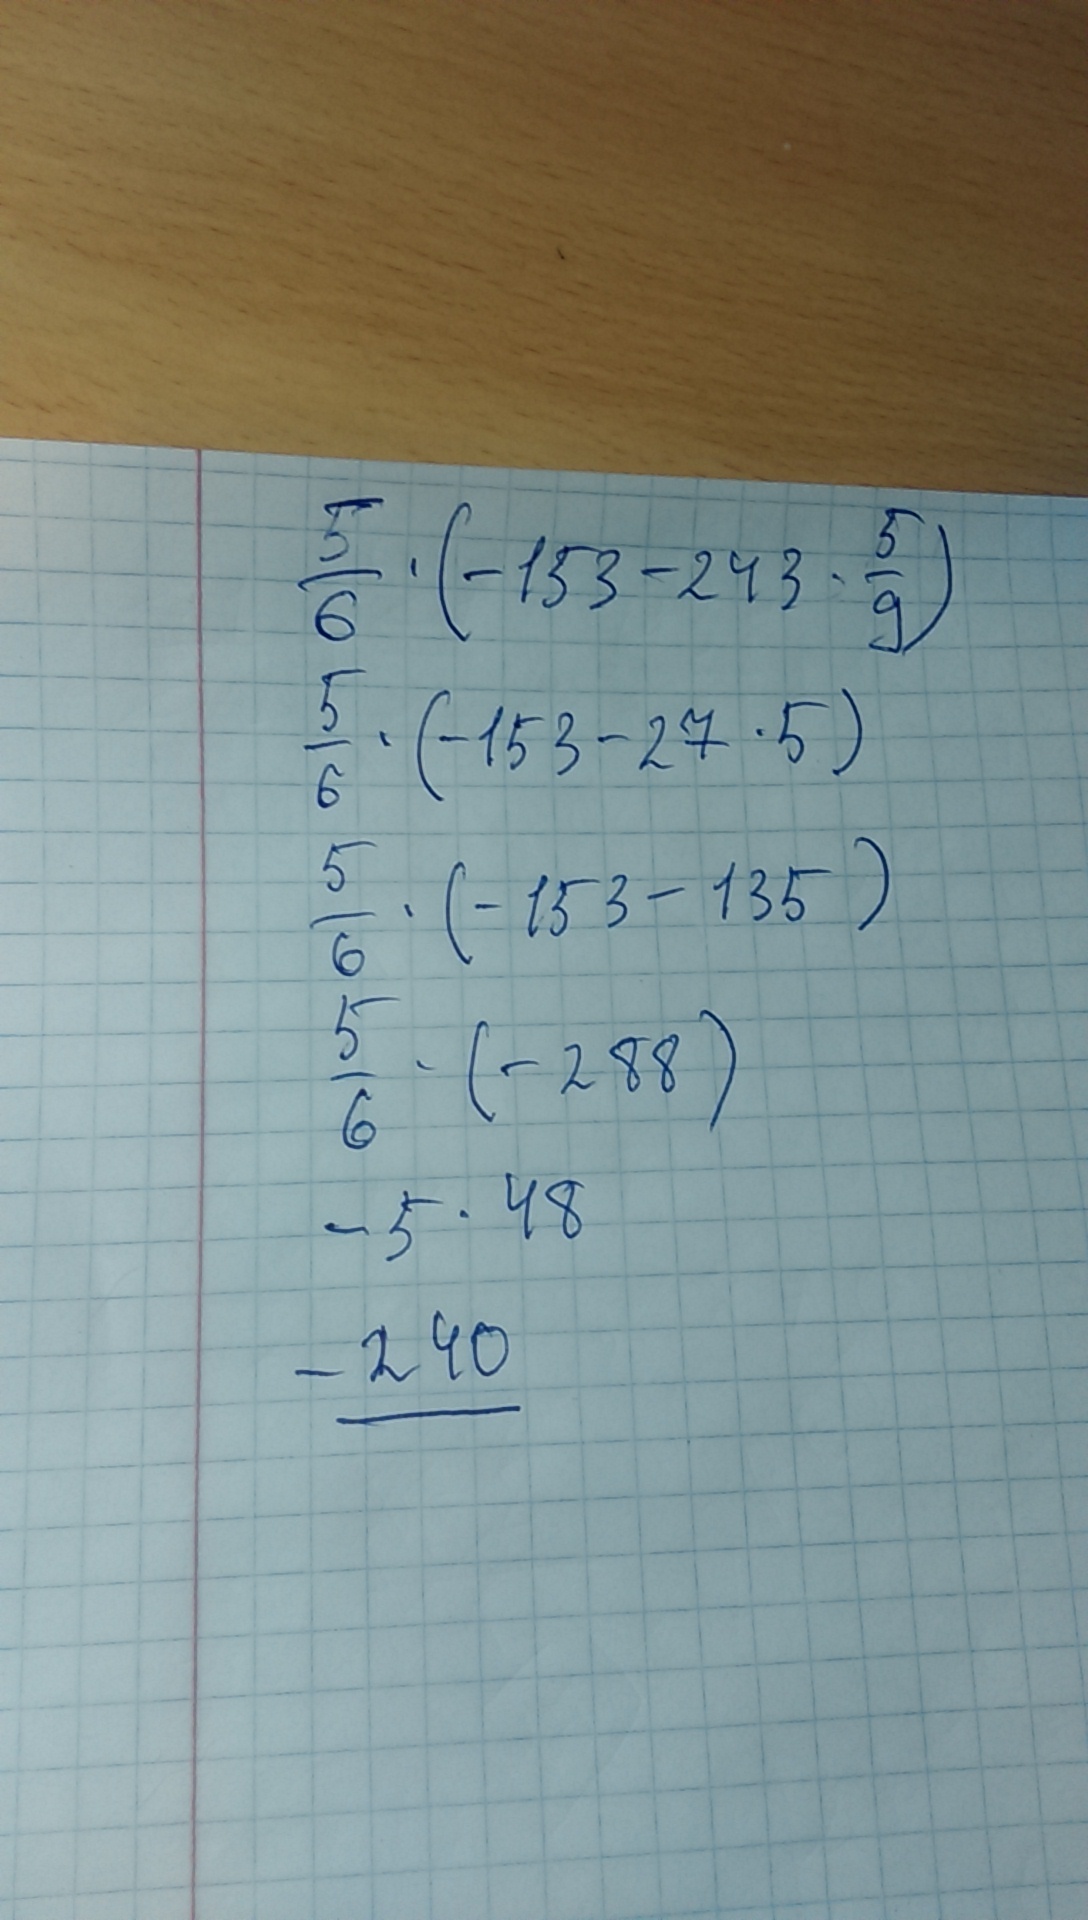 5/6 · (-153-243 · 5/9)
5/6 · (-153-27 · 5)
5/6 · (-153-135)
5/6 · (-288)
-5 · 48
-240